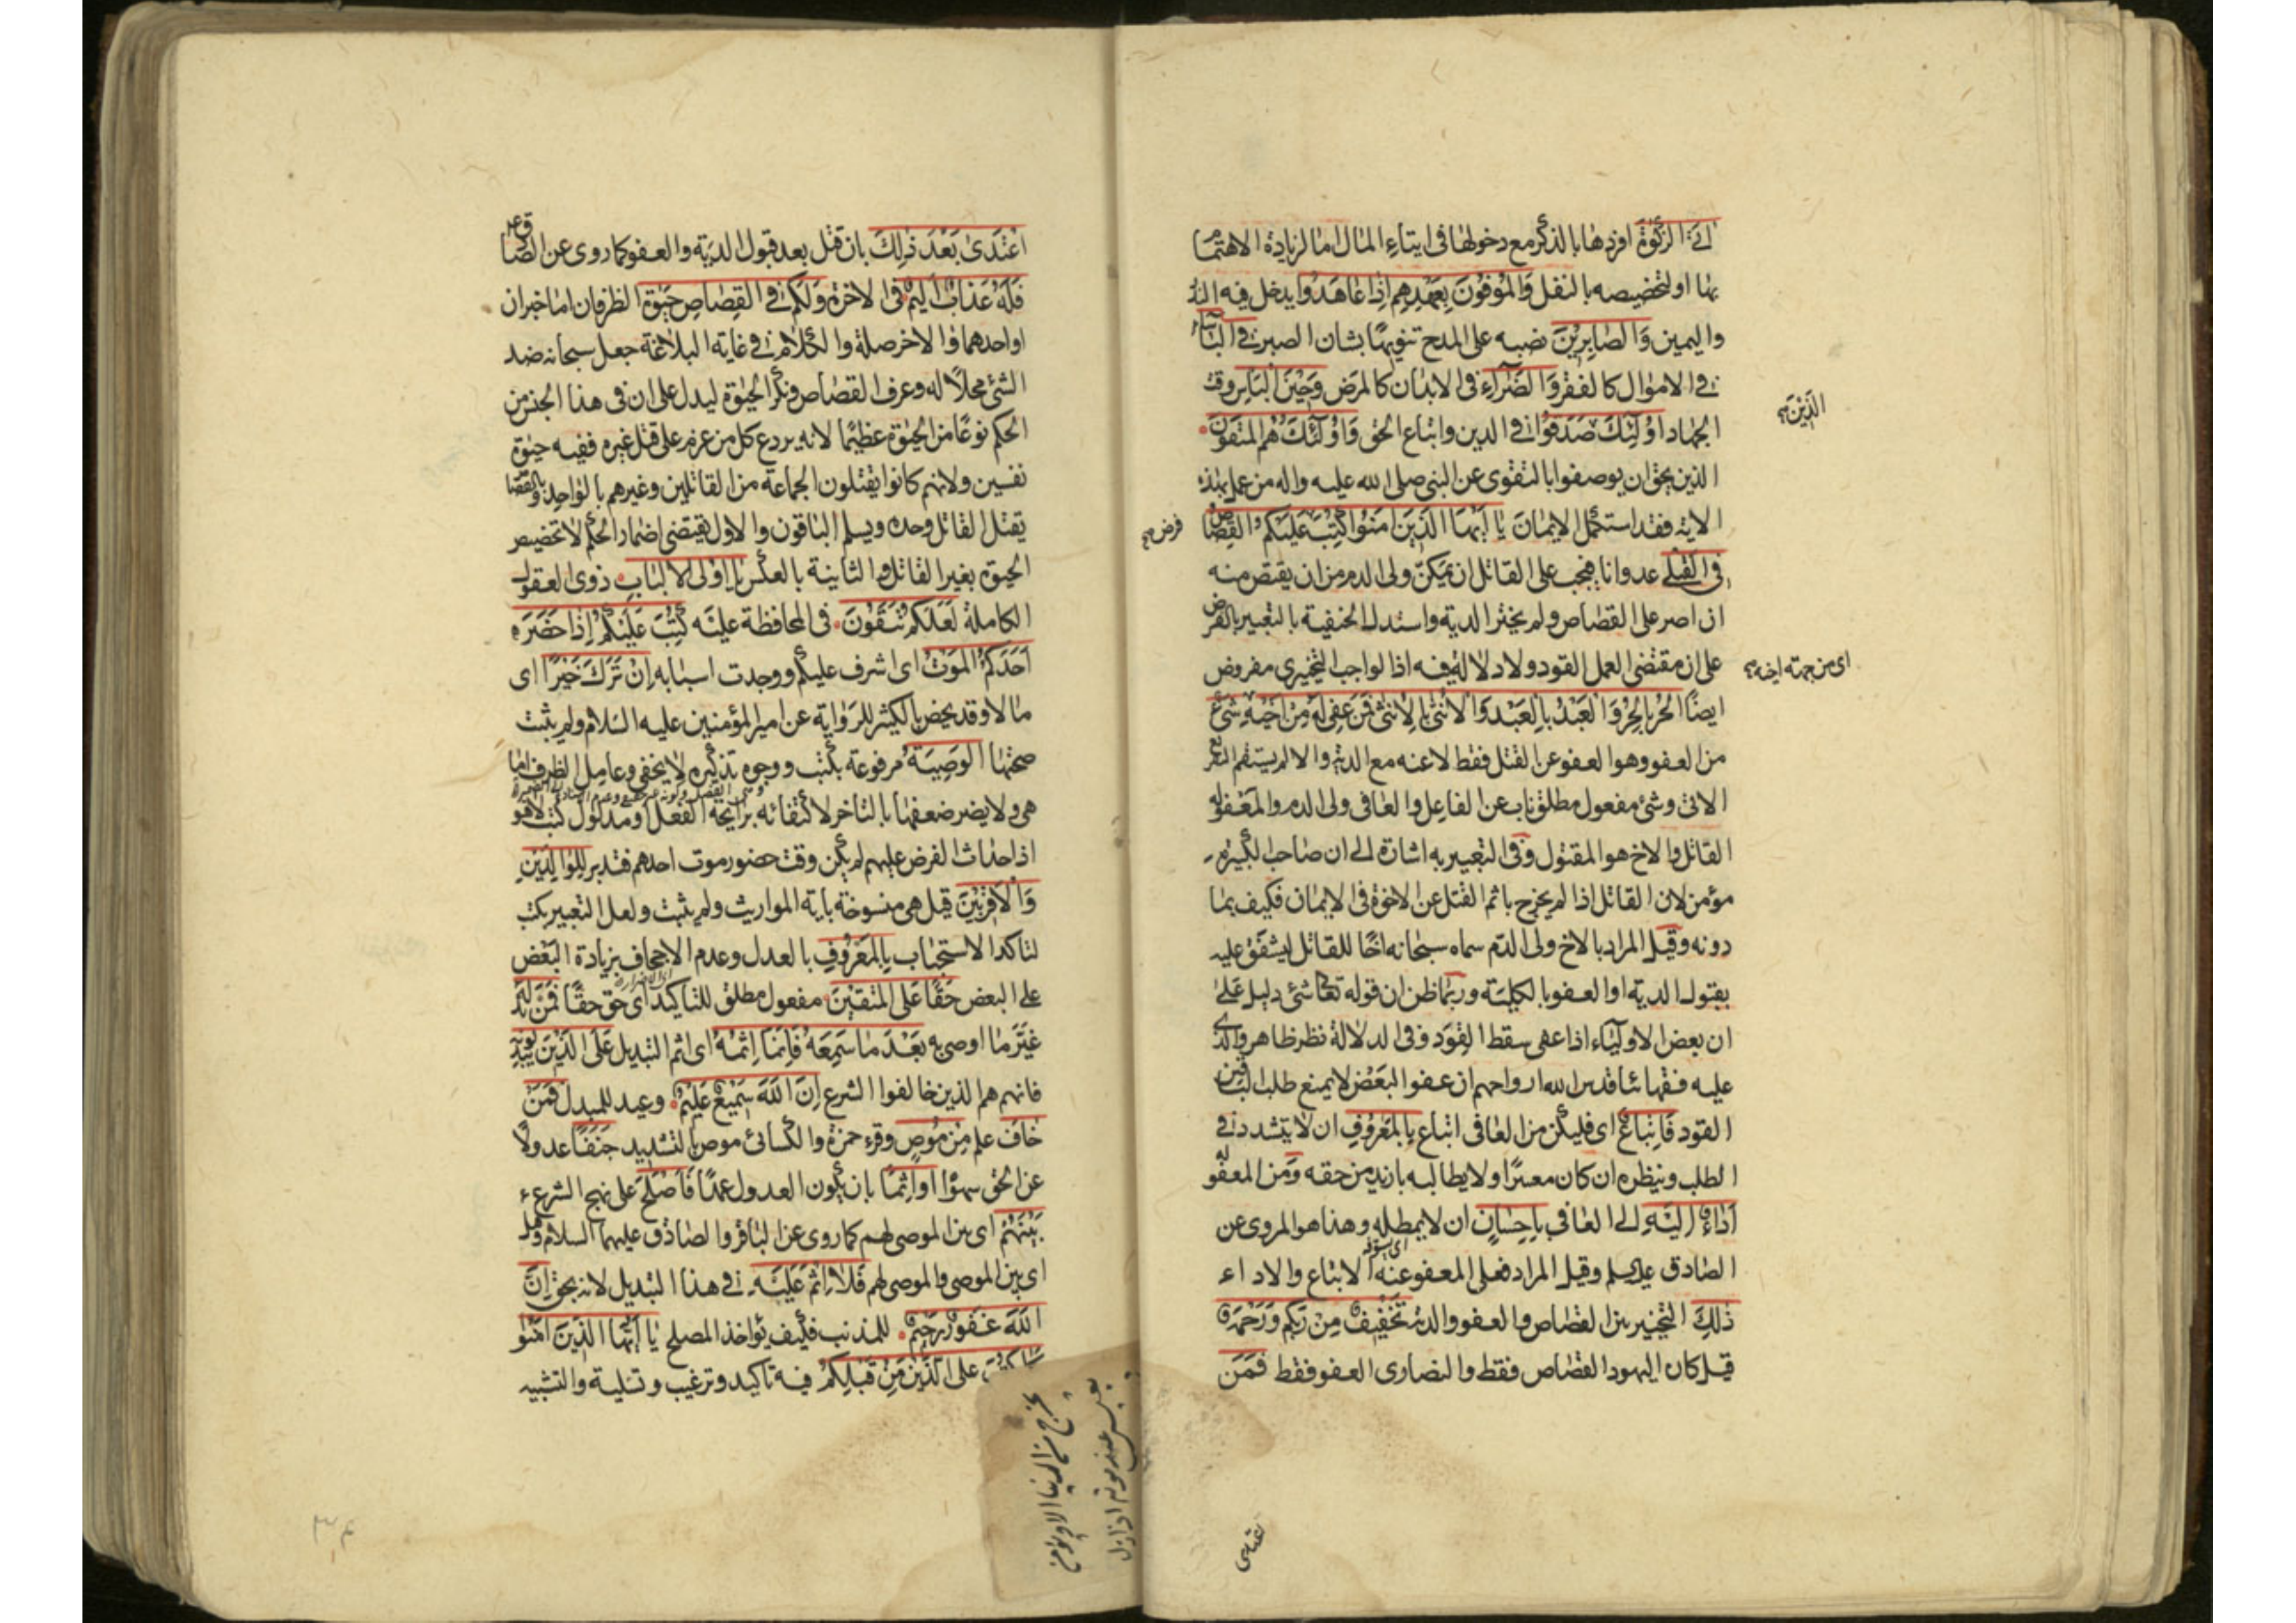 اتى الزكوة افردها بالذكر مع دخولها فى ايتاء المال اما لزيادة الاهتمام
بها او لتخصيصه بالنفل وَالْمُوفُونَ بِعَهْدِهِمْ اِذَا عَاهَدُوا يدخل فيه النذر
واليمين وَالصَّابِرِيْنَ نصبه على المدح تنويها بشان الصبر فِى الْبَأْسَاءِ
فى الاموال كالفقر وَالضَّرَّاءِ فى الابدان كالمرض وَحِيْنَ الْبَأْسِ وقت
الجهاد اُولٰئِكَ صَدَقُوا فى الدين واتباع الحق وَاُولٰئِكَ هُمُ الْمُتَّقُونَ
الَّذِيْنَ صح
الذين يحق ان يوصفوا بالتقوى عن النبى صلى الله عليه واله من عمل بهذه
الاية فقد استكمل الايمان يَا اَيُّهَا الَّذِيْنَ اٰمَنُوا كُتِبَ عَلَيْكُمُ الْقِصَاص
فرض صح
فِى الْقَتْلٰى عدوانا فيجب على القاتل ان يمكن ولى الدم من ان يقتص منه
ان اصر على القصاص ولم يختر الدية واستدل الحنفية بالتعبير بالفرض
على ان مقتضى العمل القود ولا دلالة فيه اذ الواجب التخييرى مفروض
اى من جهة اخيه صح
ايضًا الْحُرُّ بِالْحُرِّ وَالْعَبْدُ بِالْعَبْدِ وَالْاُنْثٰى بِالْاُنْثٰى فَمَنْ عُفِىَ لَهُ مِنْ اَخِيْهِ شَىْءٌ
من العفو وهو العفو عن القتل فقط لا عنه مع الدية والا لم يستقم
الاتى وشئ مفعول مطلق ناب عن الفاعل والعافى ولى الدم والمعفو له
القاتل والاخ هو المقتول وفى التعبير به اشارة الى ان صاحب الكبيرة
مؤمن لان القاتل اذا لم يخرج باثم القتل عن الاخوة فى الايمان فكيف بما
دونه وقيل المراد بالاخ ولى الدم سماه سبحانه اخًا للقاتل ليشفق عليه
بقبول الدية او العفو بالكلية وربما ظن ان قوله تعالى شئ دليل على
ان بعض الاولياء اذا عفى سقط القود وفى الدلالة نظر ظاهر والذى
عليه فقهائنا قدس الله ارواحهم ان عفو البعض لا يمنع طلب الباقين
القود فَاتِّبَاعٌ اى فليكن من العافى اتباع بِالْمَعْرُوفِ ان لا يتشدد فى
الطلب وينظره ان كان معسرًا ولا يطالبه بازيد من حقه ومن المعفو له
اَدَاءٌ اِلَيْهِ الى العافى بِاِحْسَانٍ ان لا يمطله وهذا هو المروى عن
الصادق عليه السلم وقيل المراد فعلى المعفو عنه الاتباع والاداء
ذٰلِكَ التخيير بين القصاص والعفو والدية تَخْفِيْفٌ مِنْ رَبِّكُمْ وَرَحْمَةٌ
قيل كان اليهود القصاص فقط والنصارى العفو فقط فَمَنِ
اعْتَدٰى بَعْدَ ذٰلِكَ بان قتل بعد قبول الدية والعفو كما روى عن الصادق ع
فَلَهُ عَذَابٌ اَلِيْمٌ فى الاخرة وَلَكُمْ فِى الْقِصَاصِ حَيٰوةٌ الظرفان اما خبران
او احدهما والاخر صلة والكلام فى غاية البلاغة جعل سبحانه ضد
الشئ محلًا له وعرف القصاص ونكر الحيوة ليدل على ان فى هذا الجنس من
الحكم نوعًا من الحيوة عظيمًا لانه يردع كل من عزم على قتل غيره ففيه حيوة
نفسين ولانهم كانوا يقتلون الجماعة من القاتلين وغيرهم بالواحد وبالقصاص
يقتل القاتل وحده ويسلم الباقون والاول يقتضى اضمار الحكم لا تخصيص
الحيوة بغير القاتل والثانية بالعكس يَا اُولِى الْاَلْبَابِ ذوى العقول
الكاملة لَعَلَّكُمْ تَتَّقُونَ فى المحافظة عليه كُتِبَ عَلَيْكُمْ اِذَا حَضَرَ
اَحَدَكُمُ الْمَوْتُ اى اشرف عليكم ووجدت اسبابه اِنْ تَرَكَ خَيْرًا اى
مالا وقد يخص بالكثير للرواية عن امير المؤمنين عليه السلام ولم يثبت
صحتها الْوَصِيَّةُ مرفوعة بكتب ووجوه تذكيره لا يخفى وعامل الظرف اما
هى ولا يضر ضعفها بالتاخر لاكتفائه برايحة الفعل او مدلول كتب لا هو
اذ احداث الفرض عليهم لم يكن وقت حضور موت احدهم فتدبر لِلْوَالِدَيْنِ
وَالْاَقْرَبِيْنَ قيل هى منسوخة باية المواريث ولم يثبت ولعل التعبير بكتب
لتاكد الاستحباب بِالْمَعْرُوفِ بالعدل وعدم الاجحاف بزيادة البعض
على البعض حَقًّا عَلَى الْمُتَّقِيْنَ مفعول مطلق للتاكيد اى حق حقًا فَمَنْ بَدَّلَهُ
غيّر ما اوصى به بَعْدَ مَا سَمِعَهُ فَاِنَّمَا اِثْمُهُ اى اثم التبديل عَلَى الَّذِيْنَ يُبَدِّلُونَهُ
فانهم هم الذين خالفوا الشرع اِنَّ اللهَ سَمِيْعٌ عَلِيْمٌ وعيد للمبدل فَمَنْ
خَافَ علم مِنْ مُوصٍ وقرء حمزة والكسائى موص بالتشديد جَنَفًا عدولًا
عن الحق سهوًا اَوْ اِثْمًا بان يكون العدول عمدًا فَاَصْلَحَ على نهج الشرع
بَيْنَهُمْ اى بين الموصى لهم كما روى عن الباقر والصادق عليهما السلام وقيل
اى بين الموصى والموصى لهم فَلَا اِثْمَ عَلَيْهِ فى هذا التبديل لانه بحق اِنَّ
اللهَ غَفُورٌ رَحِيْمٌ للمذنب فكيف يؤاخذ المصلح يَا اَيُّهَا الَّذِيْنَ اٰمَنُوا
على الَّذِيْنَ مِنْ قَبْلِكُمْ فيه تاكيد وترغيب وتسلية والتشبيه